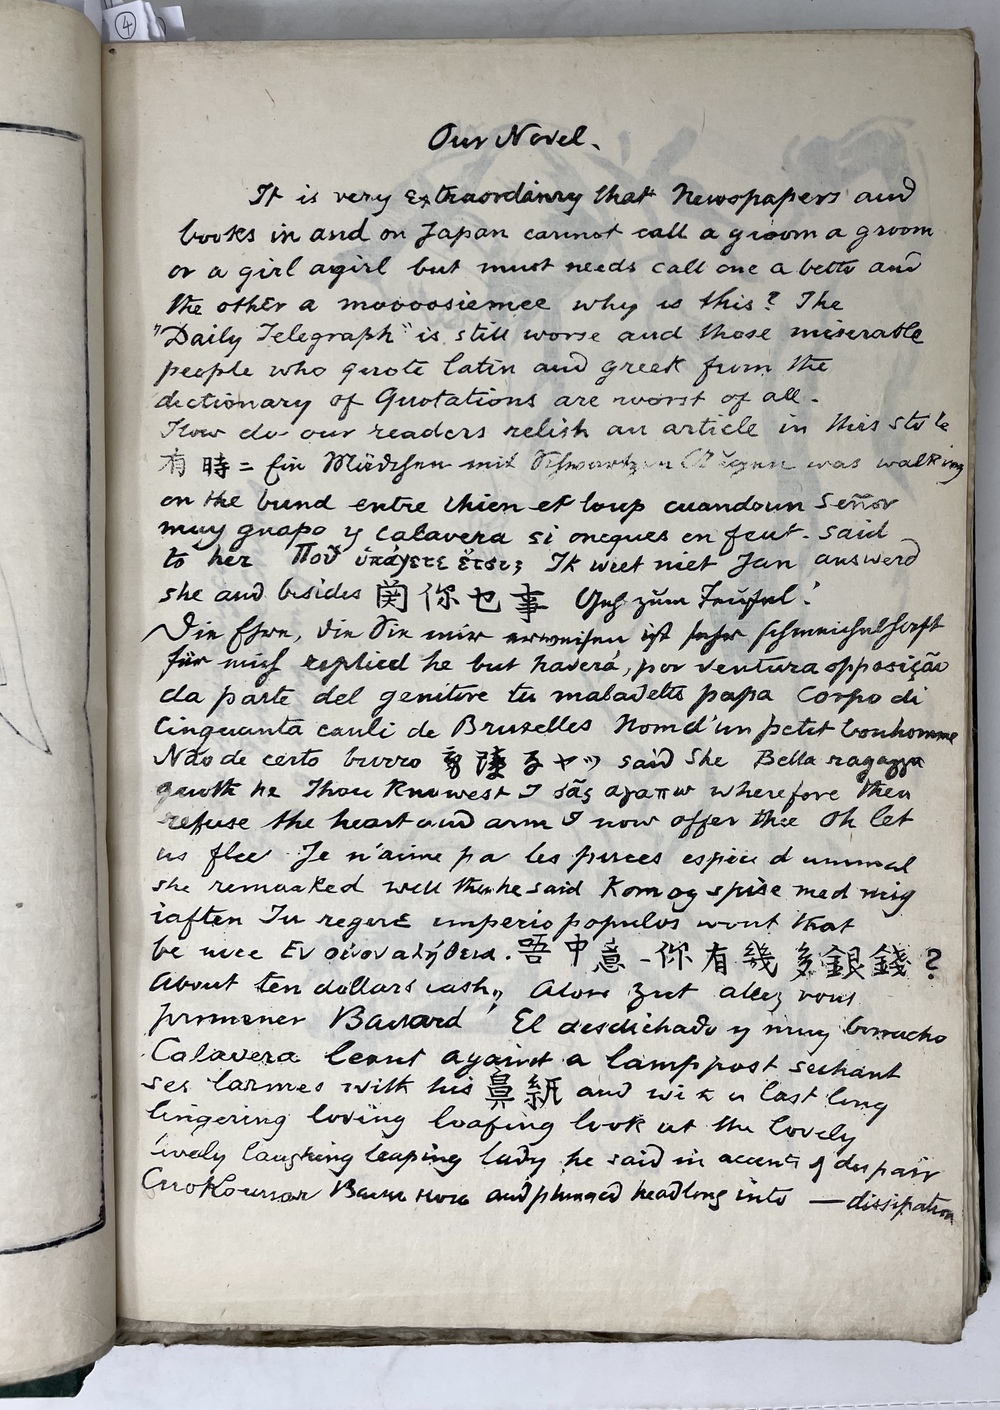 4
Our Novel.
It is very Extraordinary that Newspapers and
books in and on Japan cannot call a groom a groom
or a girl a girl but must needs call one a betto and
the other a moooosiemee why is this? The
"Daily Telegraph" is still worse and those miserable
people who quote latin and greek from the
dictionary of Quotations are worst of all.
How do our readers relish an article in this style
有時= Ein Mädchen mit Schwartzen Augen was walking
on the bund entre chien et loup cuando un Señor
muy guapo y calavera si oncques en feut. said
to her Ποῦ ὑπάγετε ἔτσι; Ik weet niet Jan answerd
she and besides 関你乜事 Geh zum Teufel!
Die Ehre, die Sie mir erweisen ist sehr schmeichelhaft
für mich replied he but haverá, por ventura opposição
da parte del genitore tu maladetto papa Corpo di
Cinquanta cauli de Bruxelles Nom d'un petit bonhomme
Não de certo burro said She Bella ragazza
quoth he Thou Knowest I σᾶς αγαπω wherefore then
refuse the heart and arm I now offer thee Oh let
us flee Je n'aime pa les puces espice d'unimal
she remarked well then he said Kom og spise med mig
iaften Tu regere imperio populos wont that
be nice Εν οίνον αλήθεια. 唔中意-你有幾多銀錢?
About ten dollars cash, Alors zut allez vous
promener Bavard! El desdichado y muy borracho
Calavera leant against a lamppost sechant
ses larmes with his 鼻紙 and with a last long
lingering loving loafing look at the lovely
lively laughing leaping lady he said in accents of despair
and plunged headlong into — dissipation